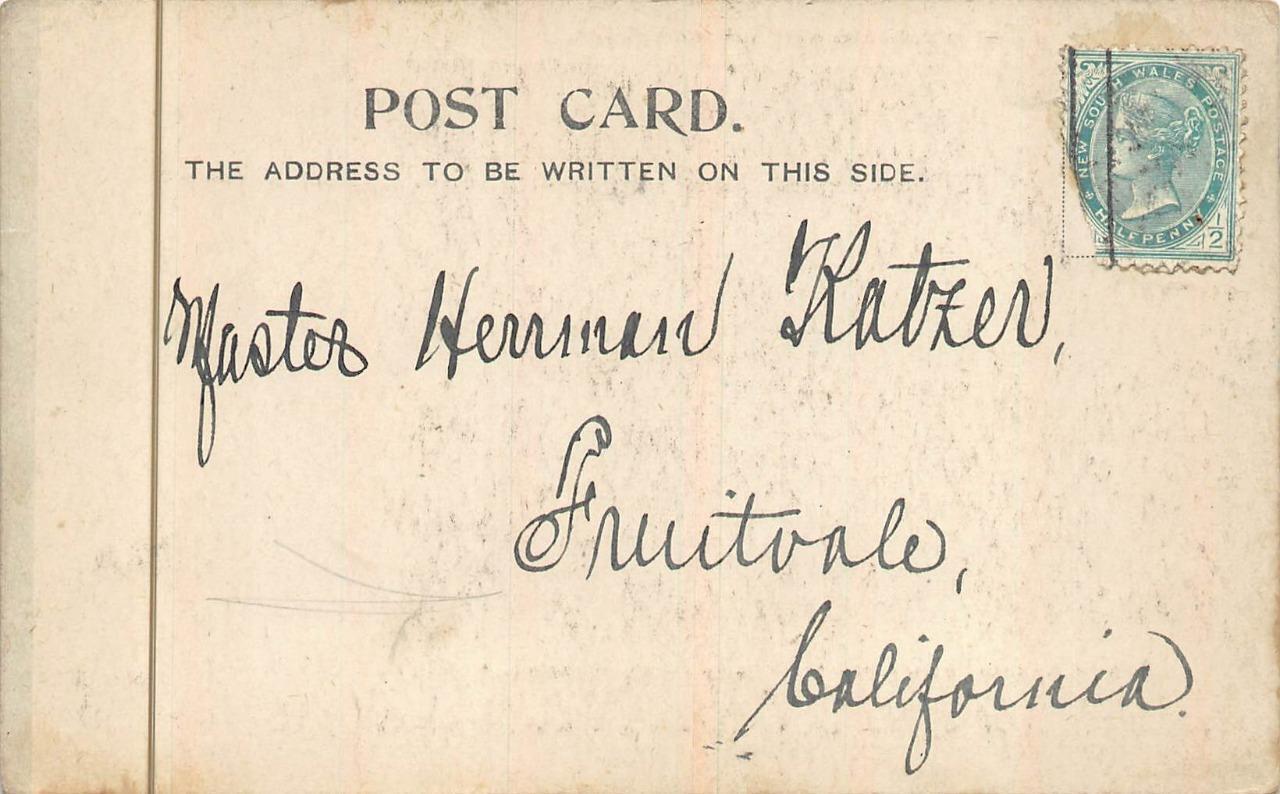 POST CARD.
THE ADDRESS TO BE WRITTEN ON THIS SIDE.
NEW SOUTH WALES POSTAGE
HALFPENNY
1/2
Master Herman Katzer,
Fruitvale,
California.